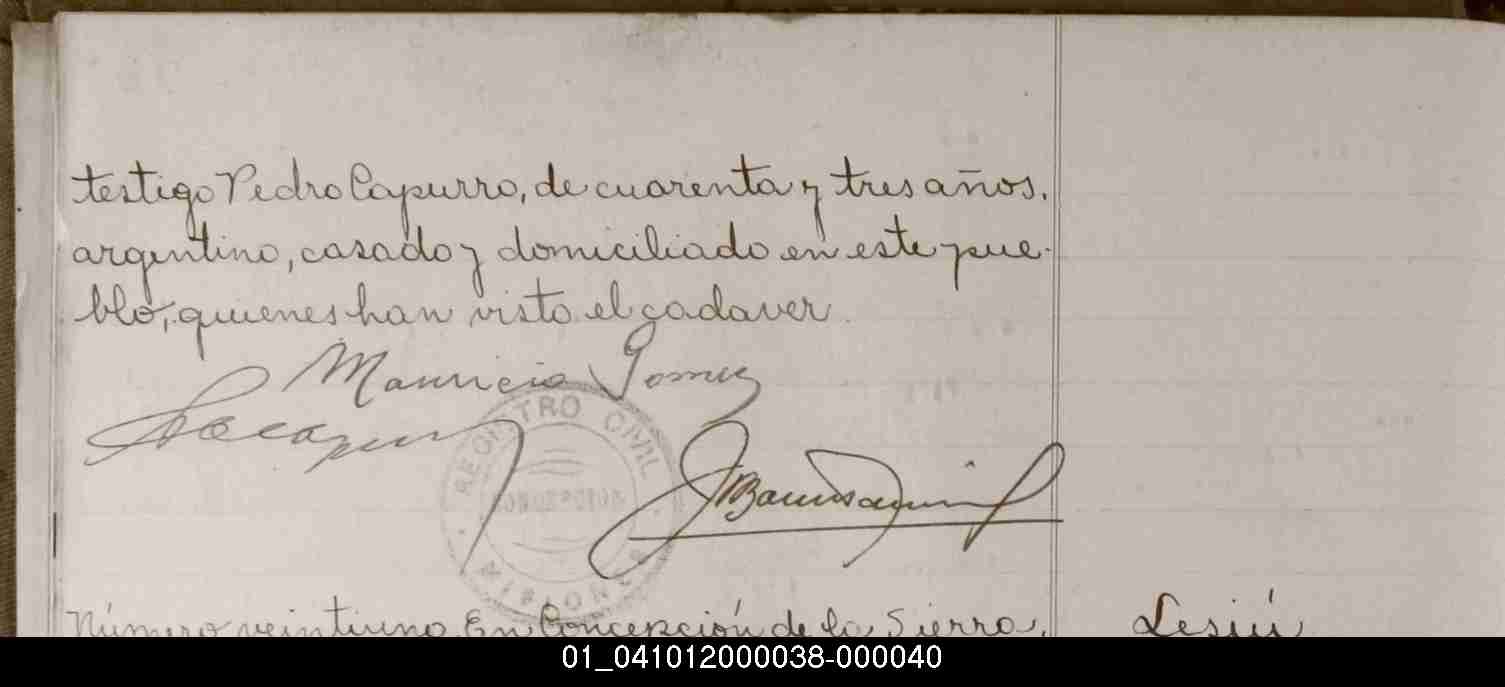 testigo Pedro Capurro, de cuarenta y tres años,
argentino, casado y domiciliado en este pue-
blo, quienes han visto el cadaver.
Mauricio Gomez
REGISTRO CIVIL
MISIONES
Número veintiuno En Concepción de la Sierra,
01_041012000038-000040